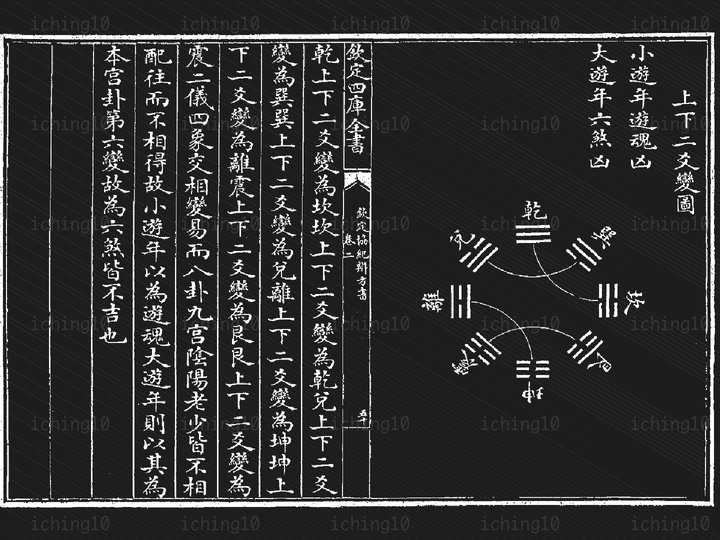 上下二爻變圖
小遊年遊魂凶
大遊年六煞凶
乾
巽
坎
艮
坤
震
離
兌
欽定四庫全書
欽定協紀辨方書
卷二
乾上下二爻變為坎坎上下二爻變為乾兌上下二爻
變為巽巽上下二爻變為兌離上下二爻變為坤坤上
下二爻變為離震上下二爻變為艮艮上下二爻變為
震二儀四象交相變易而八卦九宮陰陽老少皆不相
配往而不相得故小遊年以為遊魂大遊年則以其為
本宮卦第六變故為六煞皆不吉也
iching10